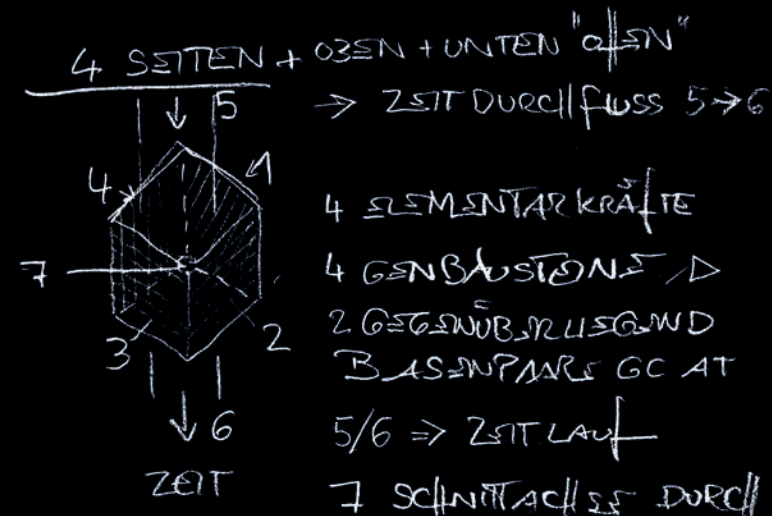 4 SEITEN + OBEN + UNTEN "offEN"
→ ZEIT DURCHfLUSS 5→6
5
4
1
7
3
2
6
ZEIT
4 ELEMENTARKRÄfTE
4 GENBAUSTEINE
2 GEGENÜBERLIEGEND
BASENPAARE GC AT
5/6 ⇒ ZEITLAUf
7 SCHNITTACHSE DURCH